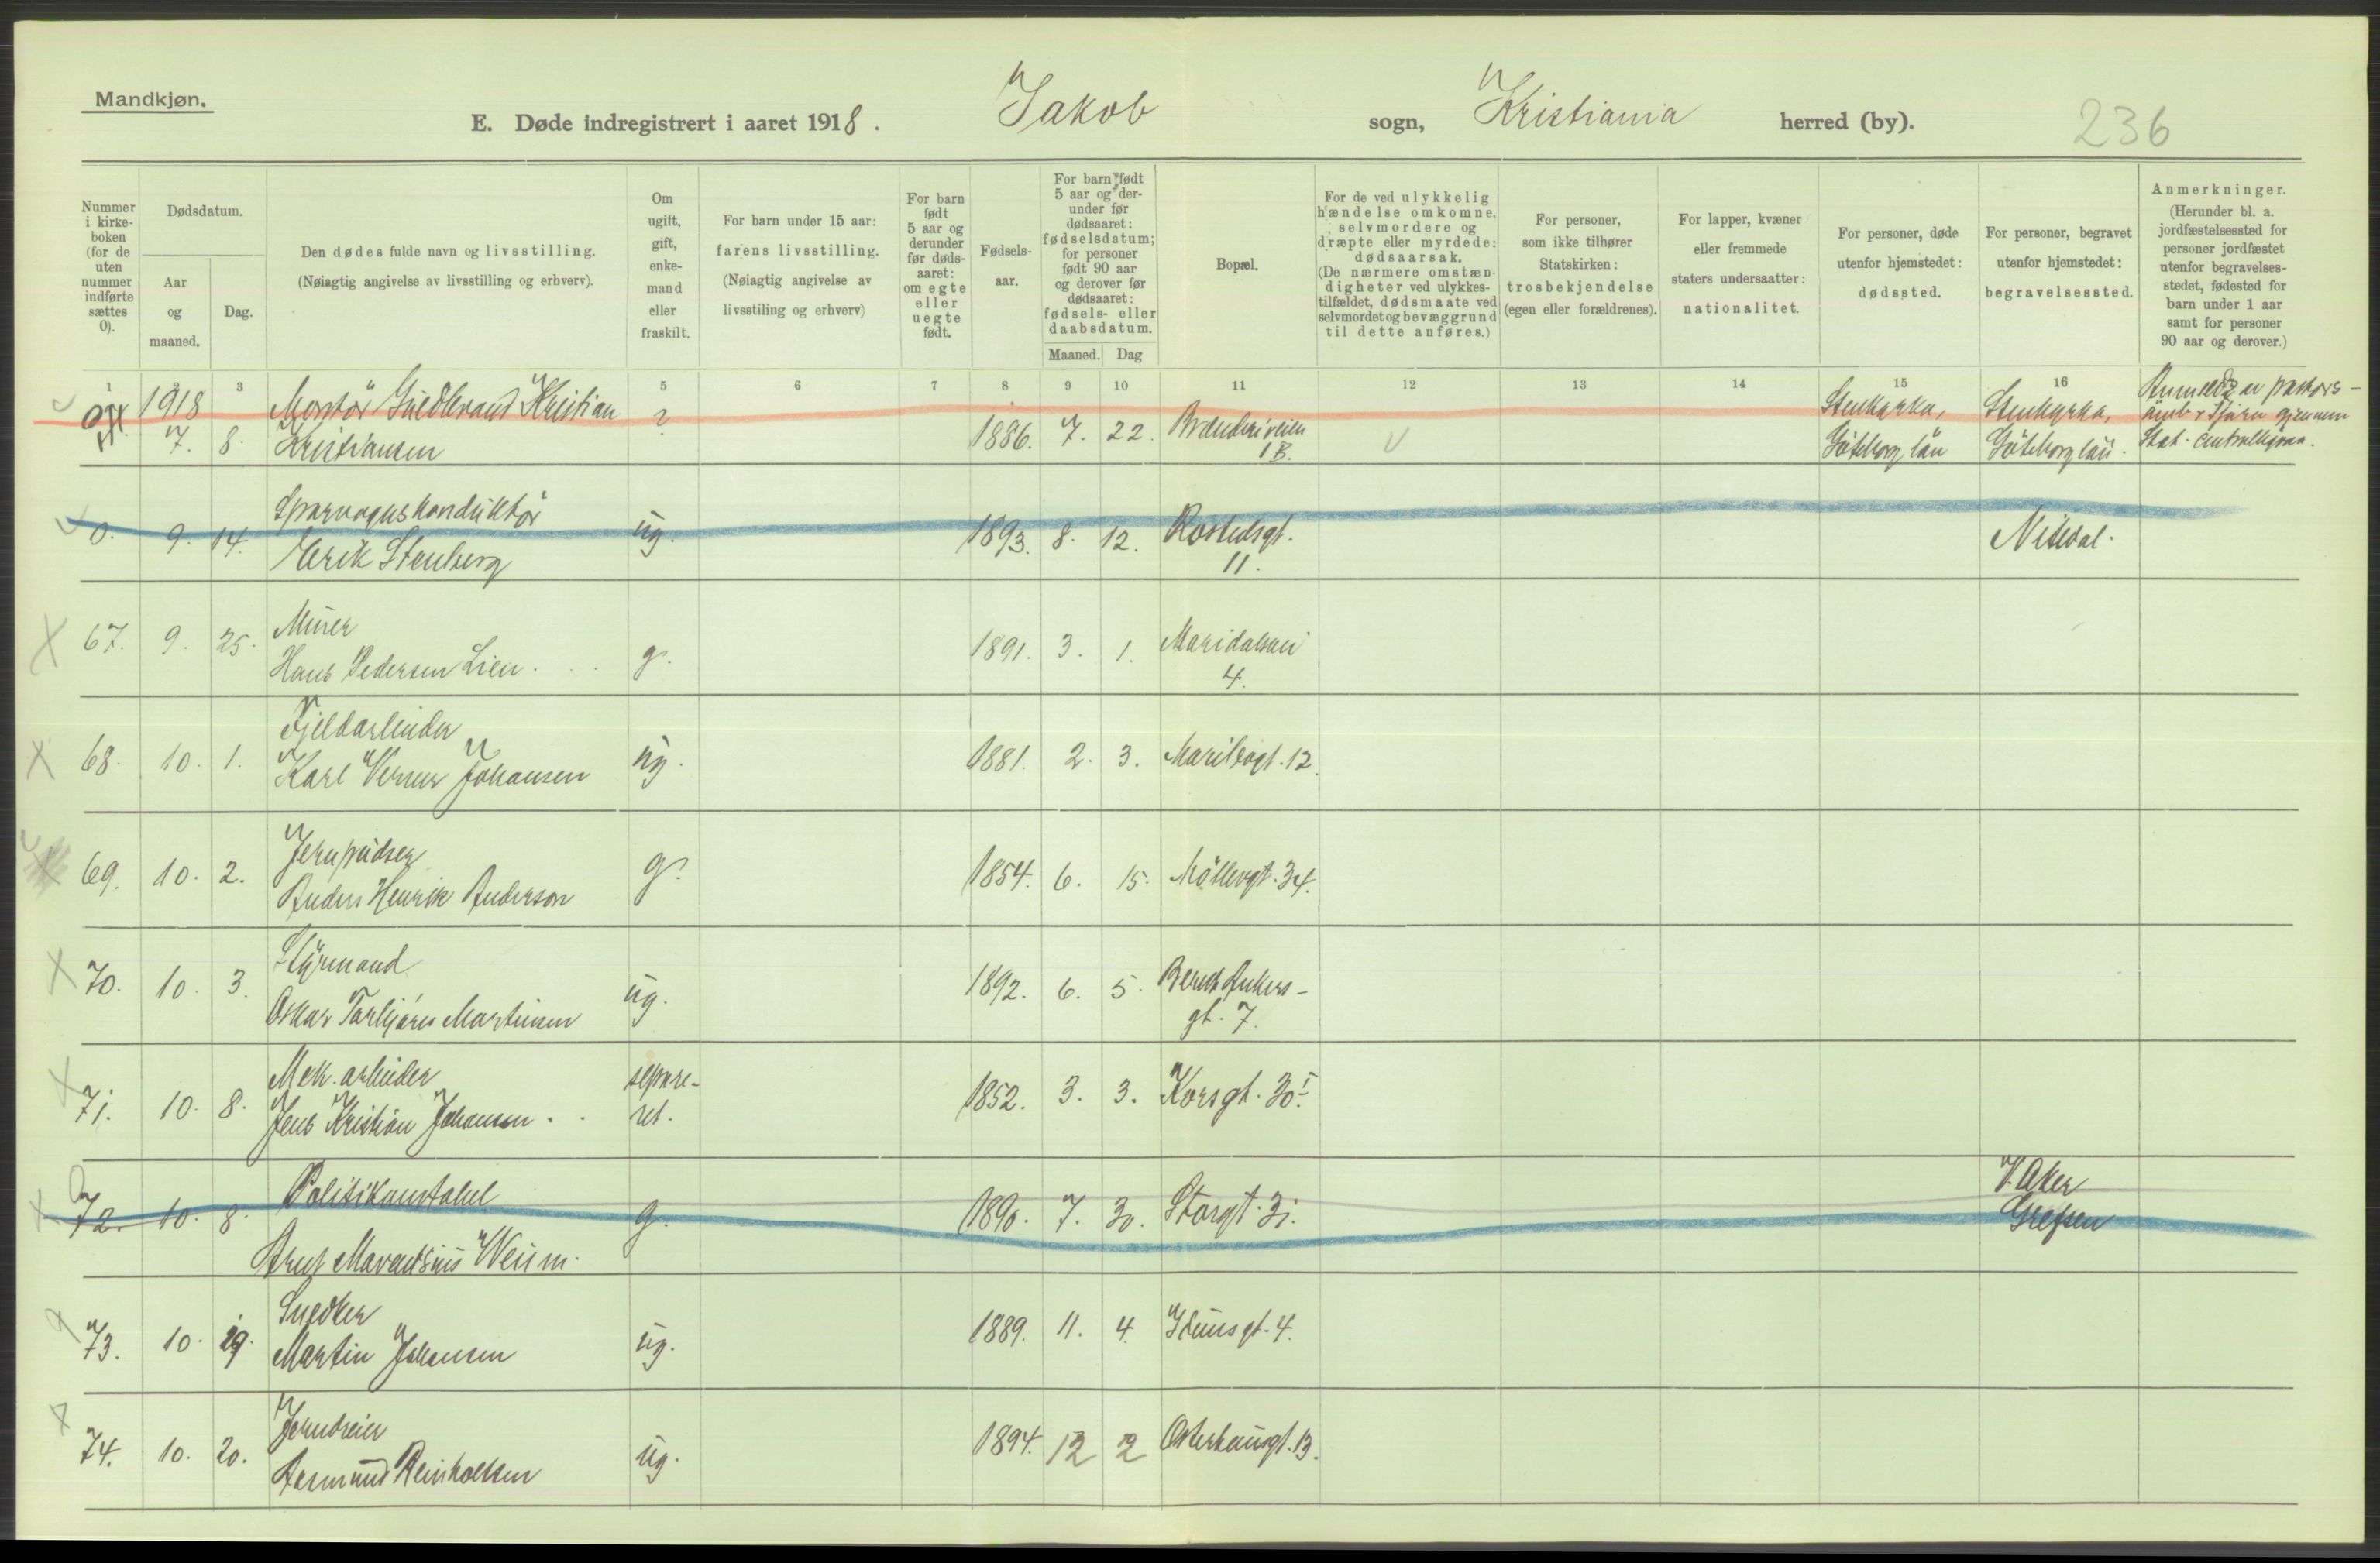 Mandkjøn.
E. Døde indregistrert i aaret 1918. Jakob sogn, Kristiania herred (by). 236
Nummer i kirke-boken (for de uten nummer indførte sættes 0).
Dødsdatum.
Aar og maaned.
Dag.
Den dødes fulde navn og livsstilling.
(Nøiagtig angivelse av livsstilling og erhverv).
Om ugift, gift, enke-mand eller fraskilt.
For barn under 15 aar:
farens livsstilling.
(Nøiagtig angivelse av
livsstiling og erhverv)
For barn født 5 aar og derunder før døds-aaret: om egte eller uegte født.
Fødsels-aar.
For barn født 5 aar og der-under før dødsaaret: fødselsdatum; for personer født 90 aar og derover før dødsaaret: fødsels- eller daabsdatum.
Maaned. Dag
Bopæl.
For de ved ulykkelig hændelse omkomne, selvmordere og dræpte eller myrdede: dødsaarsak.
(De nærmere omstæn-digheter ved ulykkes-tilfældet, dødsmaate ved selvmordet og bevæggrund til dette anføres.)
For personer, som ikke tilhører Statskirken: trosbekjendelse (egen eller forældrenes).
For lapper, kvæner eller fremmede staters undersaatter: nationalitet.
For personer, døde utenfor hjemstedet: dødssted.
For personer, begravet utenfor hjemstedet: begravelsessted.
Anmerkninger.
(Herunder bl. a. jordfæstelsessted for personer jordfæstet utenfor begravelses-stedet, fødested for barn under 1 aar samt for personer 90 aar og derover.)
1 3 5 6 7 8 9 10 11 12 13 14 15 16
1918 Montør Kristian ? Stenkyrka, Stenkyrka,
7. 8. Kristiansen 1886. 7. 22. Brenneriveien 1B. Göteborg län Göteborg län.
0. 9. 14. Sporvognskonduktör
Erik Stenberg ug. 1893. 8. 12. Rostedsgt. 11. Nitedal.
67. 9. 25. Murer
Hans Pedersen Lien. g. 1891. 3. 1. Maridalsvei 4.
68. 10. 1. Fjeldarbeider
Karl Verner Johansen ug. 1881. 2. 3. Maribogt. 12.
69. 10. 2. Jernpudser
Anders Henrik Anderson g. 1854. 6. 15. Möllergt. 34.
70. 10. 3. Styrmand
Oskar Torbjørn Martinsen ug. 1892. 6. 5. Bernt Ankers-
gt. 7.
71. 10. 8. Mek. arbeider
Jens Kristian Johansen. separe-
ret. 1852. 3. 3. Korsgt. 30 I.
72. 10. 8. Politikonstabel
g. 1890. 7. 30. Storgt. 31. V. Aker
Grefsen
73. 10. 19. Snedker
Martin Johansen ug. 1889. 11. 4. Idunsgt. 4.
74. 10. 20. Jerndreier
Aasmund Reinholtsen ug. 1894. 12 2 Osterhausgt. 13.